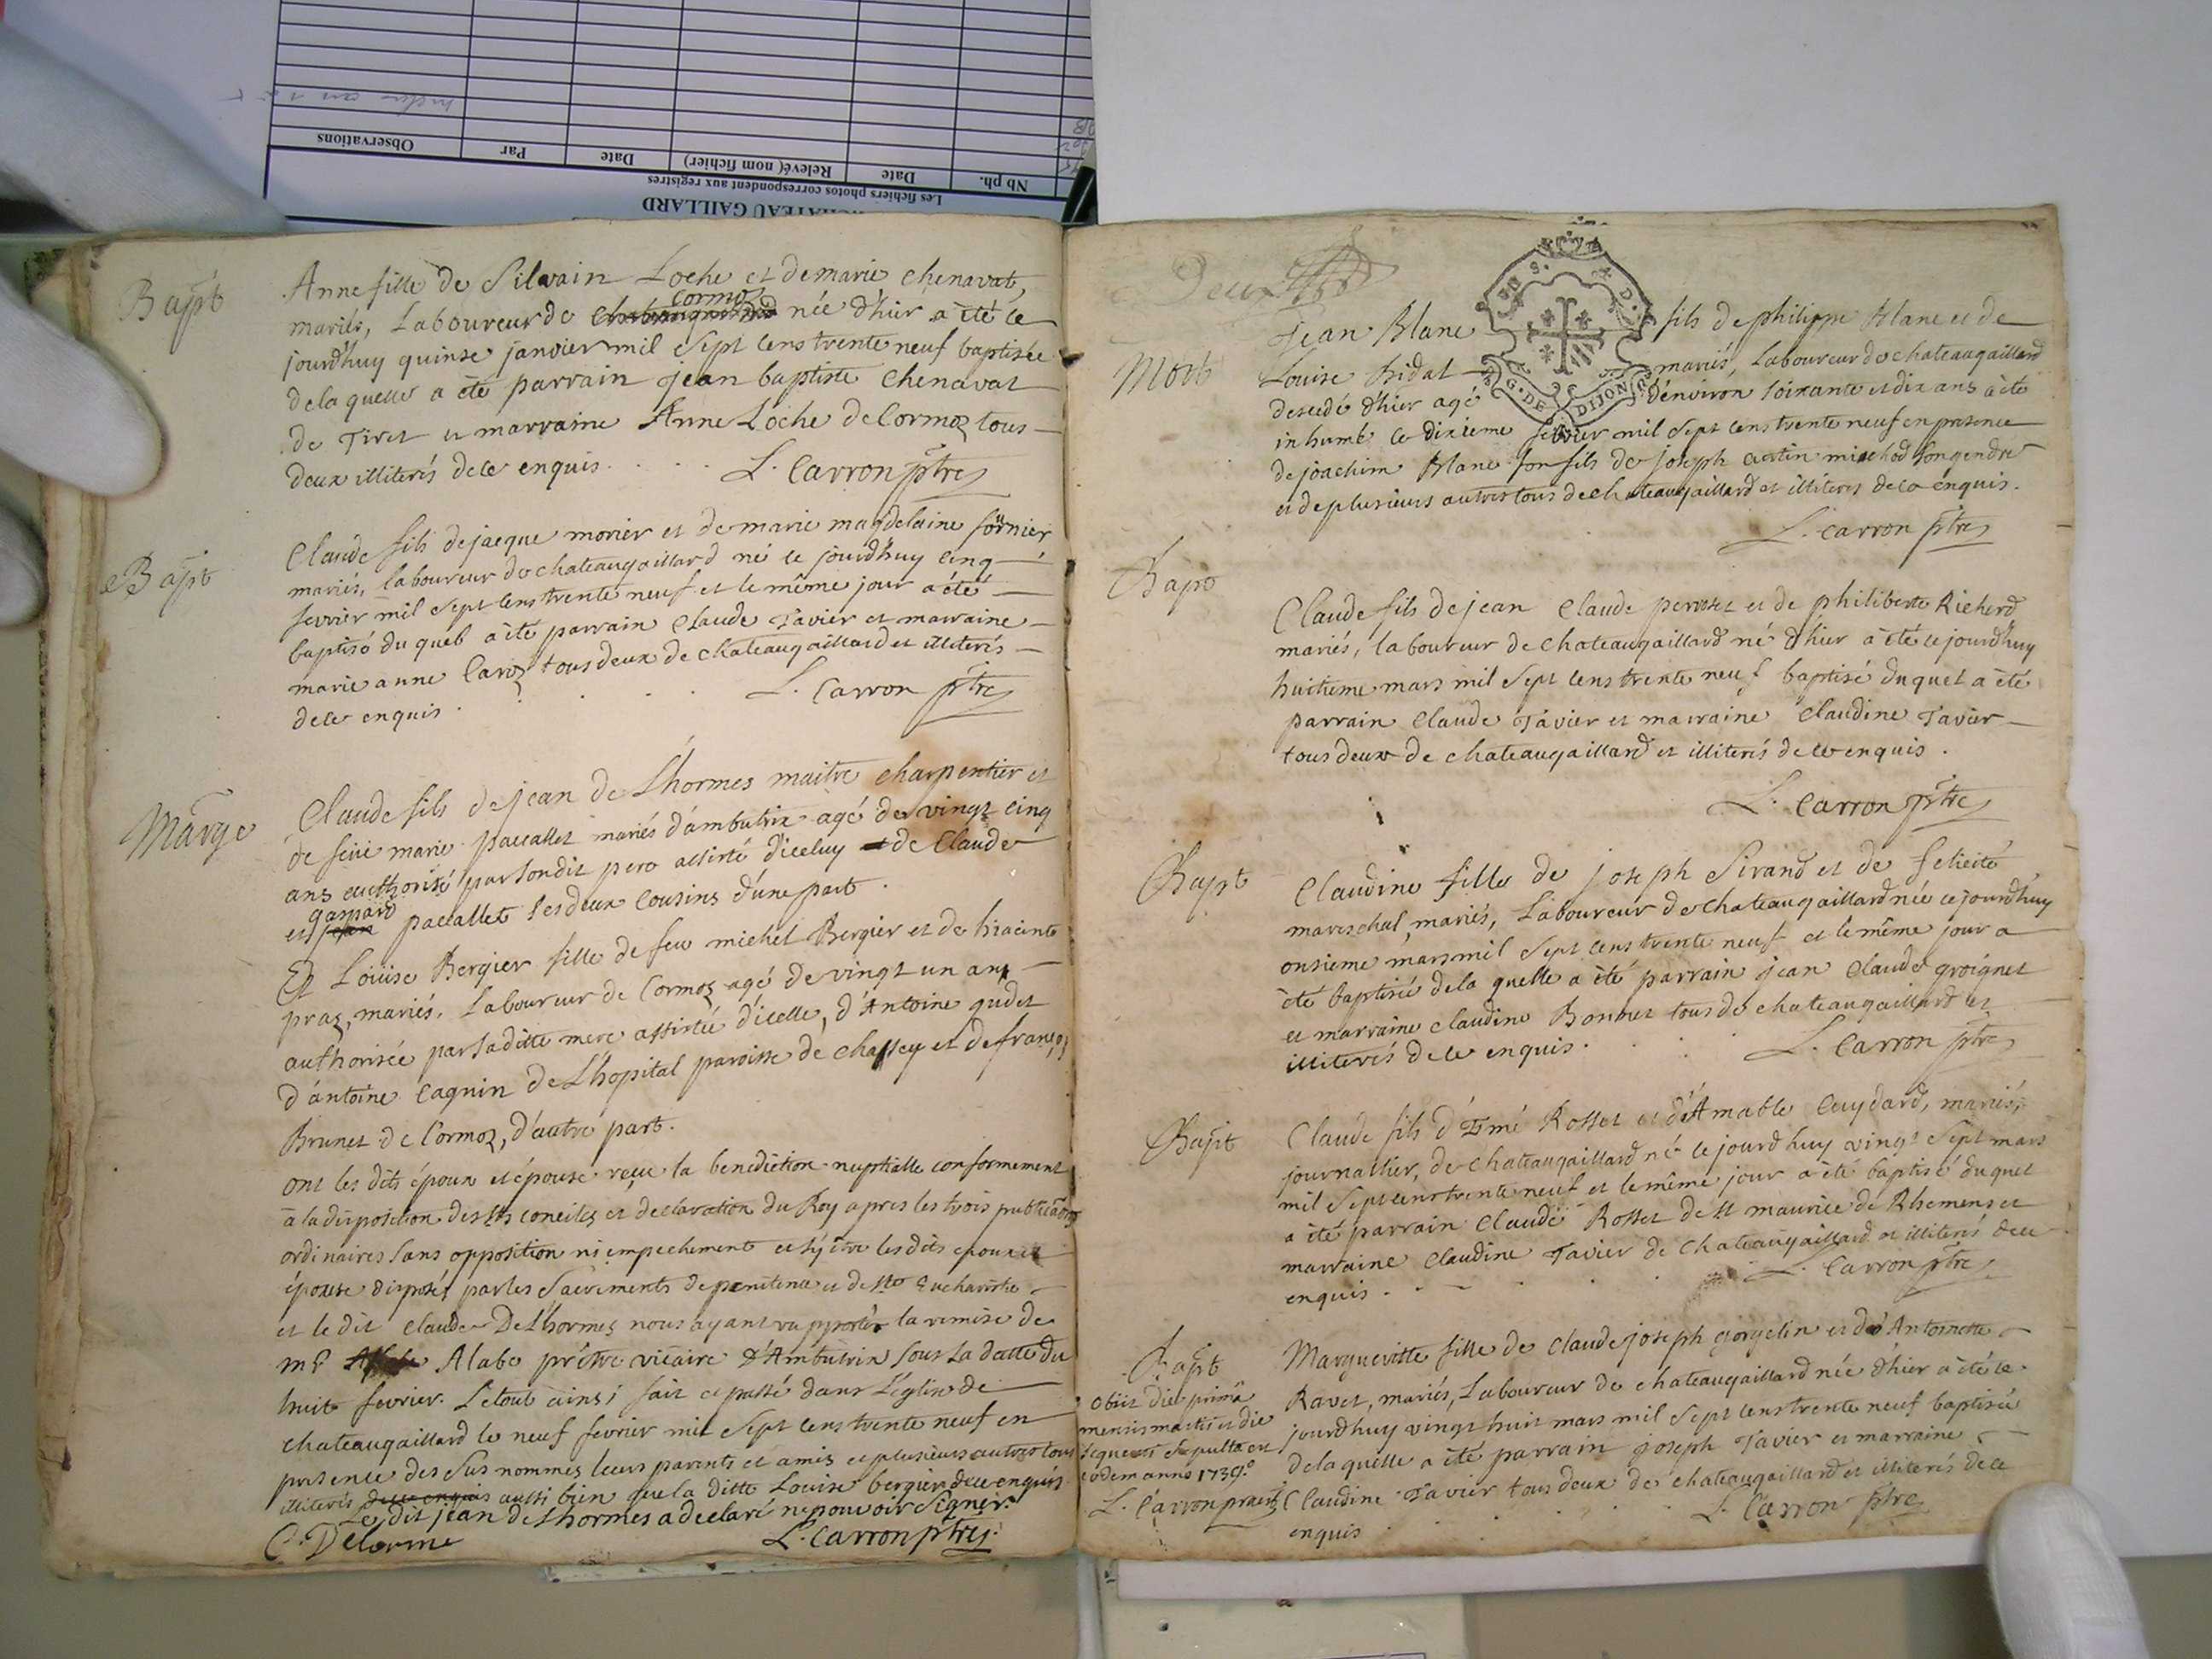 Observations
Par
Date
Relevé (nom fichier)
Date
Nb ph.
Les fichiers photos correspondent aux registres
CHATEAU GAILLARD
Bapt
Anne fille de Silvain Loche et de marie chenavat,
mariés, Laboureur de Cormoz née d'hier a èté ce
jourd'huy quinse janvier mil sept cens trente neuf baptisée
de la quelle a èté parrain jean baptiste Chenavat
de Tiret et marraine Anne Loche de Cormoz tous
deux illiterés de ce enquis. L. Carron ptre
Bapt
Claude fils de jacque morier et de marie magdelaine fornier
mariés, laboureur de chateaugaillard né ce jourd'huy cinq
fevrier mil sept cens trente neuf et le même jour a été
baptisé du quel a èté parrain Claude Tavier et marraine
marie anne Caroz tous deux de chateaugaillard et illiterés
de ce enquis. L. Carron ptre
Marge
Claude fils de jean de Lhormes maitre charpentier et
de feüe marie paccallet mariés d'ambutrix agé de vingt cinq
ans authorisé par son dit pere assisté d'iceluy de Claude
et gaspard paccallet ses deux Cousins d'une part.
Et Loüise Bergier fille de feu michel Bergier et de hiacinte
praz, mariés, Laboureur de Cormoz agé de vingt un ans
authorisée par sa ditte mere assistée d'icelle, d'Antoine gudet
d'antoine Cagnin de L'hopital paroisse de Chassey et de françois
Brunet de Cormoz, d'autre part.
ont les dits époux et épouse reçu la benediction nuptialle conformement
a la disposition des Sts conciles et declaration du Roy apres les trois publications
ordinaires sans opposition ni empechement et s'y être les dits epoux et
épouse disposés par les sacrements de penitence et de Ste Eucharistie
et le dit Claude De Lhormes nous ayant rapporté la remise de
mr Alabe prêtre vicaire d'Ambutrix sous la datte du
huit fevrier. Le tout ainsi fait et passé dans L'église de
chateaugaillard le neuf fevrier mil sept cens trente neuf en
presence des sus nommés leurs parents et amis et plusieurs autres tous
illiterés de ce enquis aussi bien que la ditte Louise bergier de ce enquis
Le dit jean de Lhormes a declaré ne pouvoir signer.
C. Delorme L. Carron ptre
Deux
G. DE DIJON
Mort
Jean Blanc fils de philippe Blanc et de
Louise Bidat mariés, Laboureur de chateaugaillard
decedé d'hier agé d'environ soixante et dix ans a èté
inhumé ce dixieme fevrier mil sept cens trente neuf en presence
de joachim Blanc son fils de joseph antin michod son gendre
et de plusieurs autres tous de chateaugaillard et illiterés de ce enquis.
L. Carron ptre
Bapt
Claude fils de jean Claude perosset et de philiberte Richerd
mariés, laboureur de chateaugaillard né d'hier a èté ce jourd'huy
huitieme mars mil sept cens trente neuf baptisé du quel a èté
parrain Claude Tavier et marraine Claudine Tavier
tous deux de chateaugaillard et illiterés de ce enquis.
L. Carron ptre
Bapt
Claudine fille de joseph Sirand et de felicité
mareschal, mariés, Laboureur de chateaugaillard née ce jourd'huy
onsieme mars mil sept cens trente neuf et le même jour a
èté baptisée de la quelle a èté parrain jean Claude groignet
et marraine claudine Bonnet tous de chateaugaillard et
illiterés de ce enquis. L. Carron ptre
Bapt
Claude fils d'Emé Rosset et d'Amable Cuydard, mariés,
journallier, de chateaugaillard né ce jourd'huy vingt sept mars
mil sept cens trente neuf et le même jour a èté baptisé du quel
a èté parrain Claude Rosset de St maurice de Rhemens et
marraine Claudine Tavier de chateaugaillard et illiterés de ce
enquis. L. Carron ptre
Bapt
Obiit die prima
mensis martis et die
sequenti sepulta est
eodem anno 1739.
L. Carron
Margueritte fille de Claude joseph gorgelin et de Antoinette
Ravet, mariés, Laboureur de chateaugaillard née d'hier a èté ce
jourd'huy vingt huit mars mil sept cens trente neuf baptisée
de la quelle a èté parrain joseph Tavier et marraine
Claudine Tavier tous deux de chateaugaillard et illiterés de ce
enquis L. Carron ptre